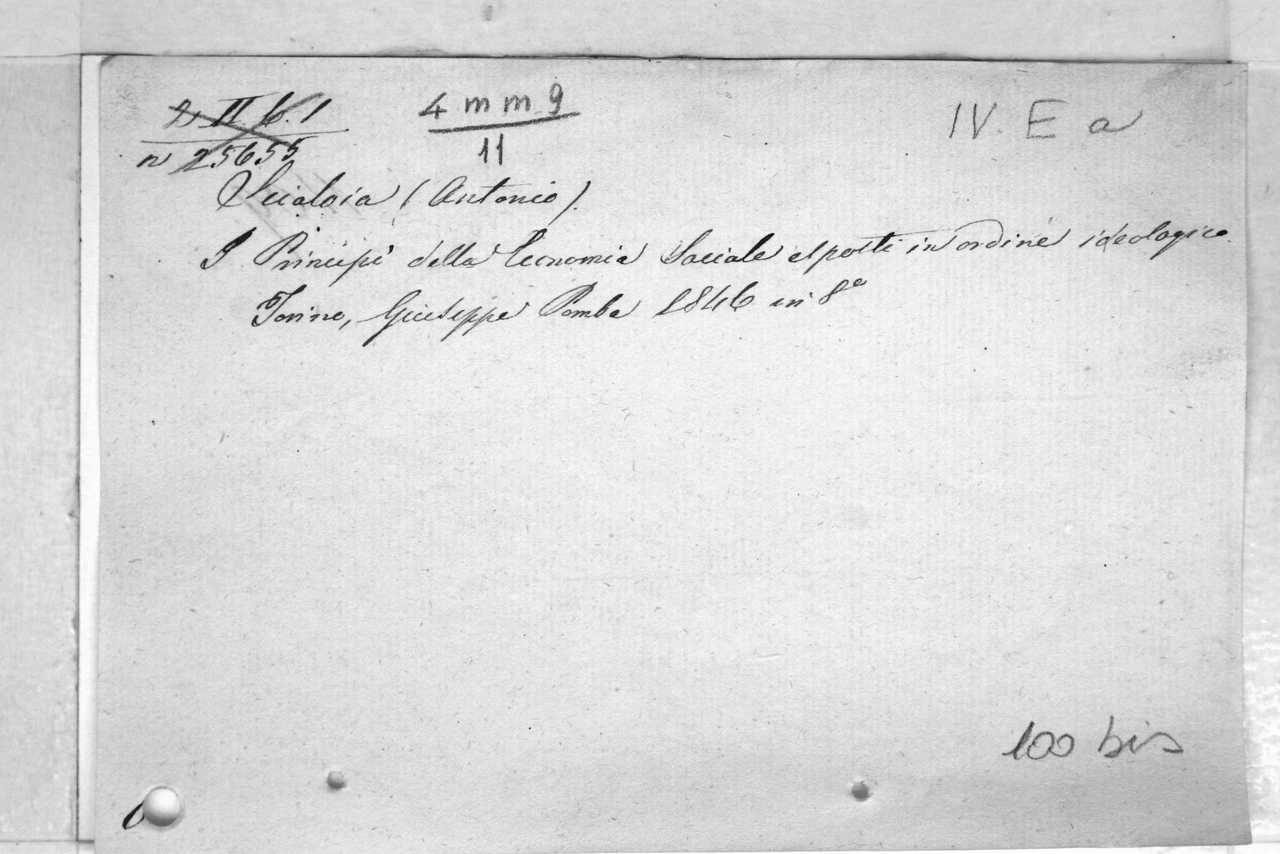 2 II 6. 1
n 25655
4 m m 9
11
IV. E a
Scialoia (Antonio).
I Principi della Economia Sociale esposti in ordine ideologico
Torino, Giuseppe Pomba 1846 in 8º
100 bis